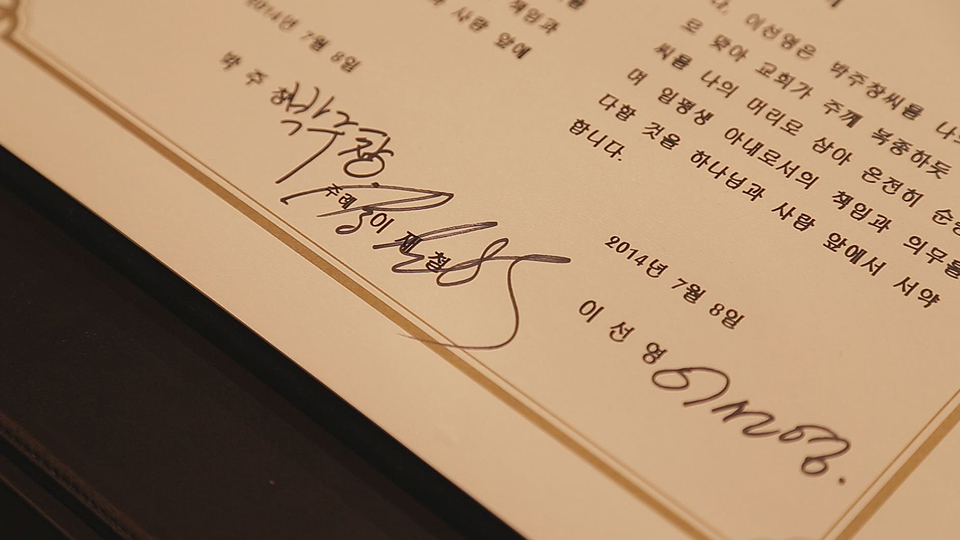 책임과
사람 앞에
2014년 7월 8일
박 주 창 박주창
주례 이 재 철
다. 이선영은 박주창씨를 나의
로 맞아 교회가 주께 복종하듯
씨를 나의 머리로 삼아 온전히 순종
며 일평생 아내로서의 책임과 의무를
다할 것을 하나님과 사람 앞에서 서약
합니다.
2014년 7월 8일
이 선 영 이선영.